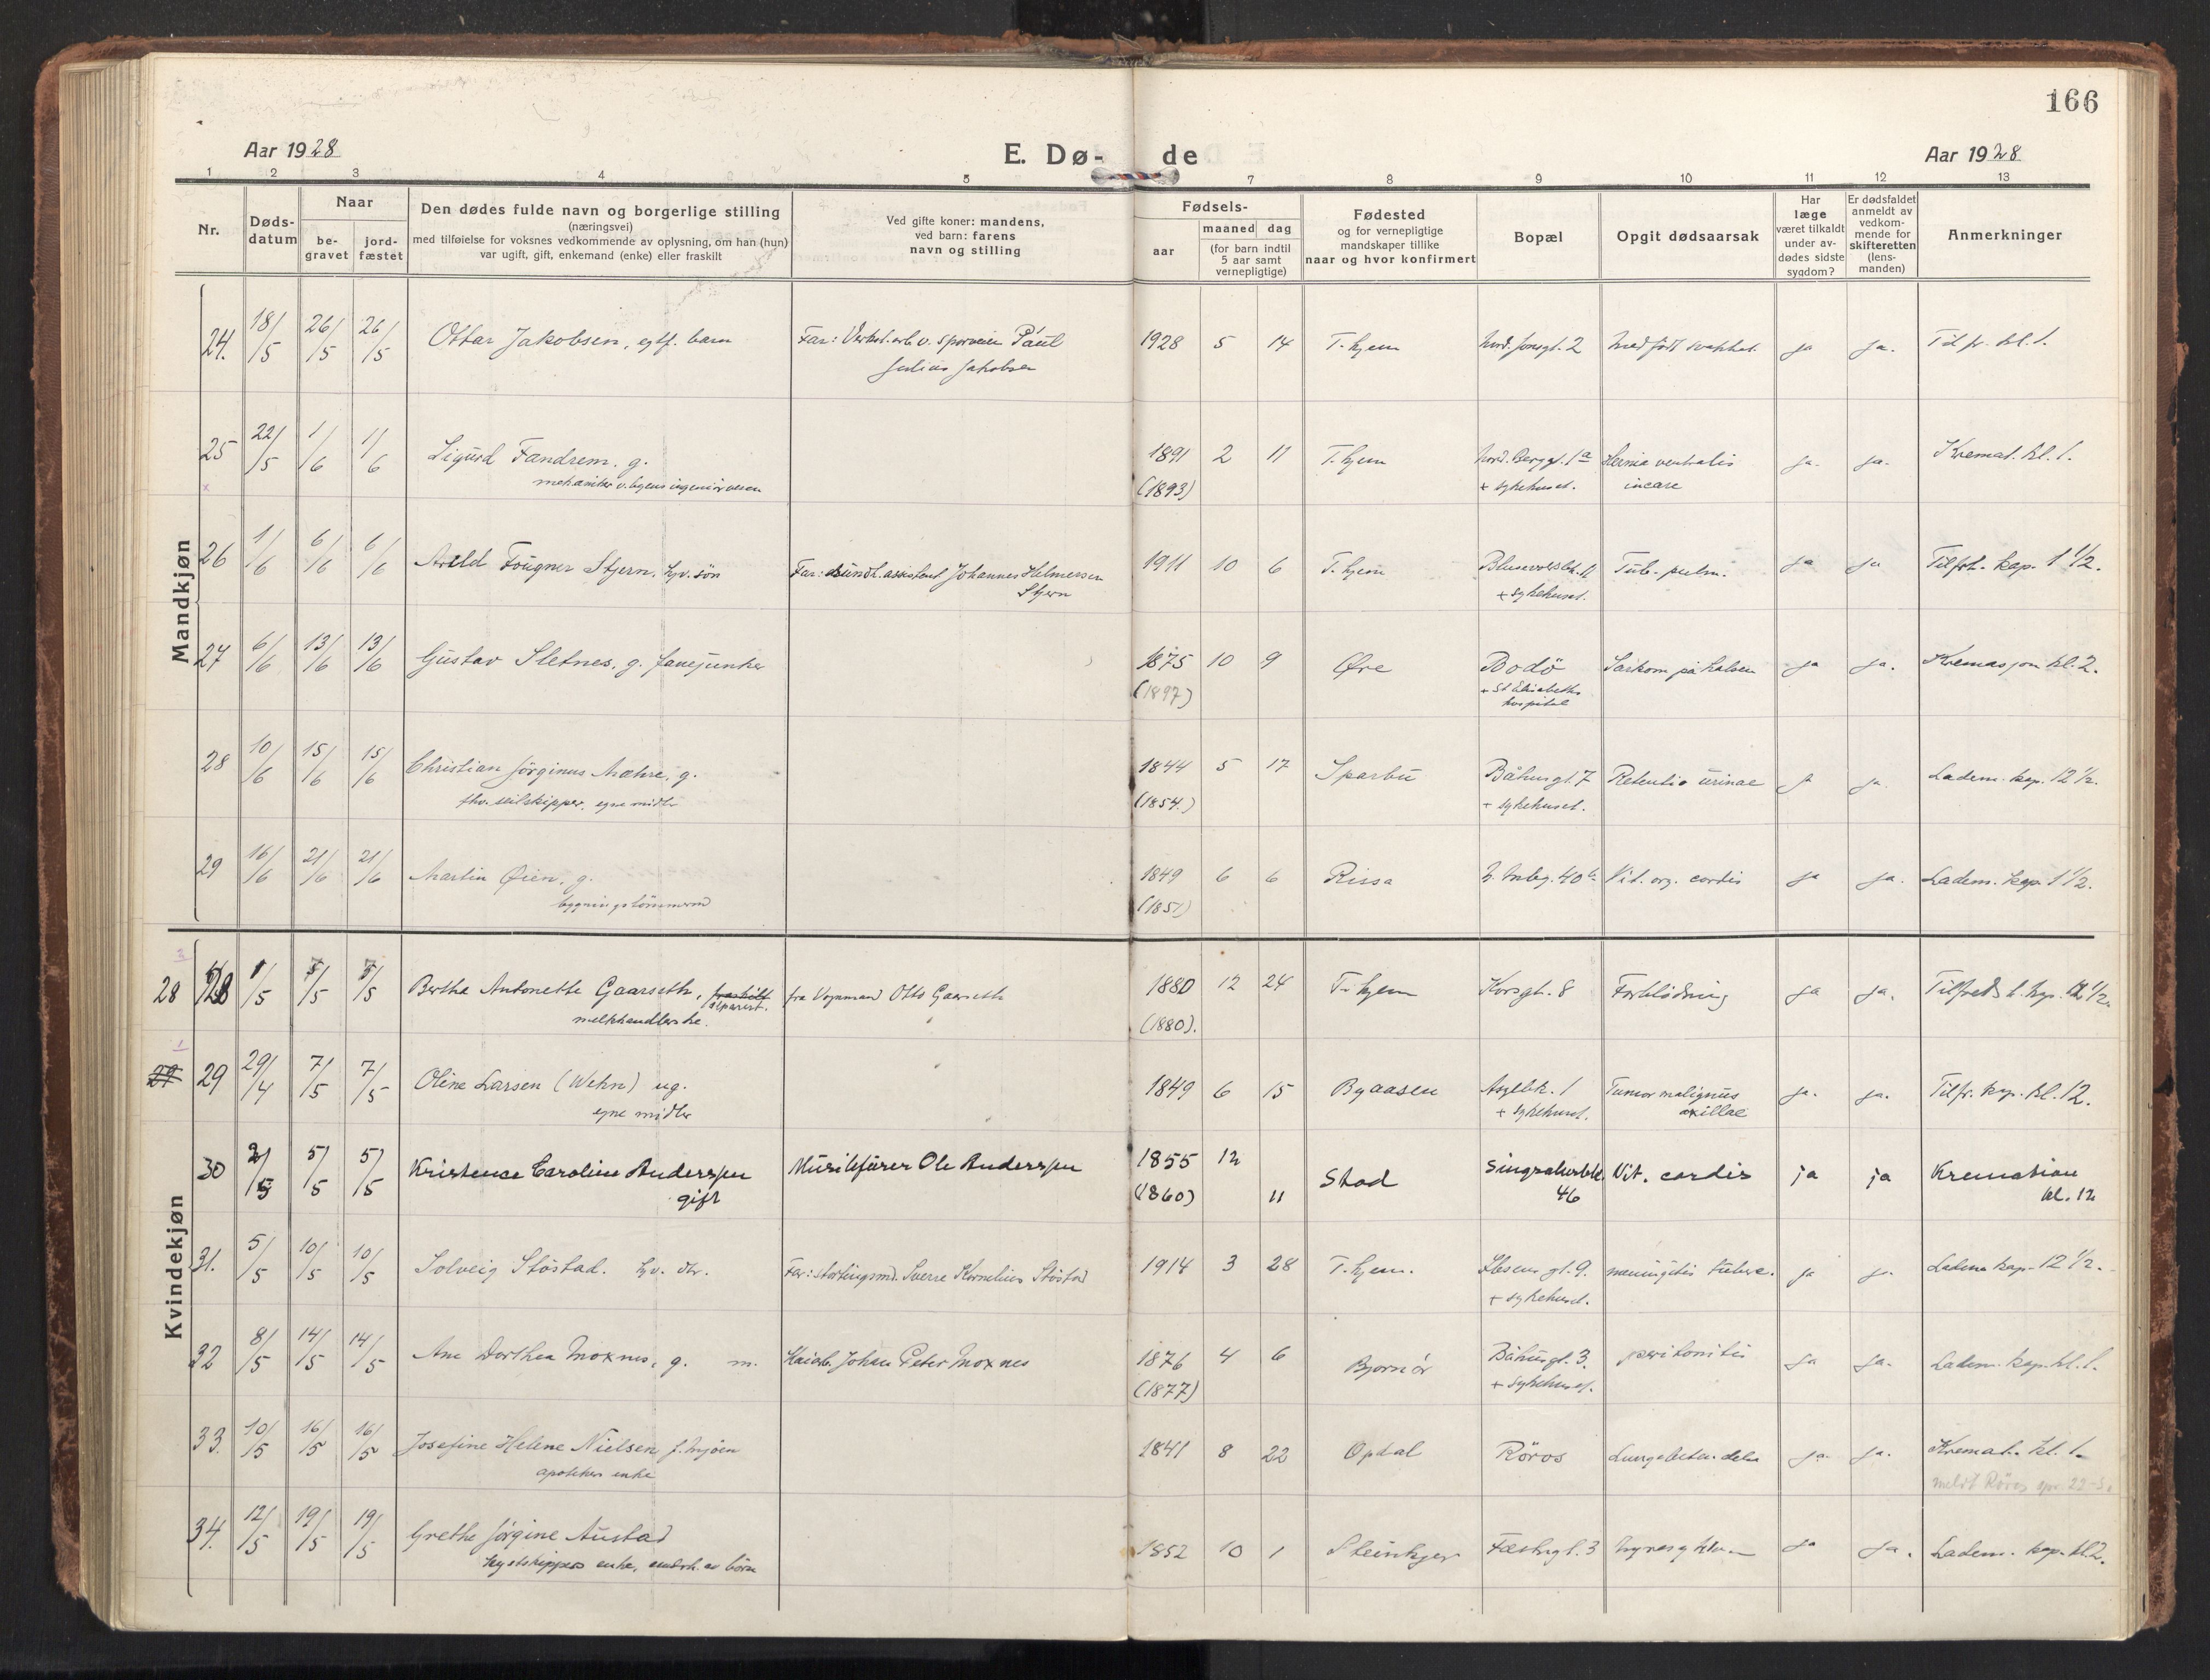 166
Aar 1928
E. Dø- de
Aar 1928
1 2 3 4 5 7 8 9 10 11 12 13
Nr.
Døds-
datum
Naar
be-
gravet
jord-
fæstet
Den dødes fulde navn og borgerlige stilling
(næringsvei)
med tilføielse for voksnes vedkommende av oplysning, om han (hun)
var ugift, gift, enkemand (enke) eller fraskilt
Ved gifte koner: mandens,
ved barn: farens
navn og stilling
Fødsels-
aar
maaned dag
(for barn indtil
5 aar samt
vernepligtige)
Fødested
og for vernepligtige
mandskaper tillike
naar og hvor konfirmert
Bopæl
Opgit dødsaarsak
Har
læge
været tilkaldt
under av-
dødes sidste
sygdom?
Er dødsfaldet
anmeldt av
vedkom-
mende for
skifteretten
(lens-
manden)
Anmerkninger
Mandkjøn
24. 18/5 26/5 26/5 Ottar Jakobsen, egtf. barn Far: Verkst.arb. v. sporveien Paul 1928 5 14 T.hjem 2 Medfødt svakhet ja ja. Tilfr. kl. 1.
Julius Jakobsen
25 22/5 1/6 1/6 Sigurd Fandrem. g. 1891 2 11 T.hjem Nord. Berggt. 1a Hernia ventralis ja. ja. Kremat. kl. 1.
x mekaniker v. byens ingeniørvesen (1893) + sykehuset. incarc
26 1/6 6/6 6/6 Arild Fougner Stjern. hjv. søn Far: sundh.assistent Johannes Halmersen 1911 10 6 T.hjem Tub. pulm. ja ja Tilfrh. kap. 1 1/2.
Stjern + sykehuset.
27 6/6 13/6 13/6 Gustav Sletnes, g. fanejunker 1875 10 9 Øre Bodö Sarkom på halsen ja ja. Kremasjon kl. 2.
(1897) + St Elisabeths
hospital
28 10/6 15/6 15/6 Christian Jørginus Mæhre, g. 1844 5 17 Sparbu Båhusgt. 7 Retentio urinae ja ja. Ladem. kap. 12 1/2.
fhv. seilskipper, egne midler (1854.) + sykehuset.
29 16/6 21/6 21/6 Martin Øien, g. 1849 6 6 Rissa 40b Vit. org. cordis ja ja. Ladem. kap. 1 1/2.
bygningstømmermd (1851)
Kvindekjøn
3
28 28 1/5 7/5 7/5 Bertha Antonette Gaarseth, fraskilt fra Vognmand Otto Gaarseth 1880 12 24 T.hjem Korsgt. 8 Forblödning ja ja. Tilfreds h. kap.
separert.
melkhandlerske. (1880).
1
29 29 29/4 7/5 7/5 Oline Larsen (Wehn) ug. 1849 6 15 Byaasen Asylbk. 1 Tumor malignus ja. ja. Tilfr. kap. kl. 12.
egne midler + sykehuset. axillae
30 2/5 5/5 5/5 Kristence Caroline Anderssen Musikfører Ole Anderssen 1855 12 Stod Singsakerbk. Vit. cordis ja ja Kremation
gift (1860) 11 46 kl. 12
31. 5/5 10/5 10/5 Solveig Støstad. hjv. dtr. Far: stortingsmd. Sverre Kornelius Støstad 1914 3 28 T.hjem. Ibsens gt. 9. meningitis tuberc. ja ja. Ladem. kap. 12 1/2.
+ sykehuset.
32 8/5 14/5 14/5 Ane Dorthea Moxnes, g. m. Kaiarb. Johan Peter Moxnes 1876 4 6 Bjørnør Båhusgt. 3. peritonitis ja ja. Ladem. kap. kl. 1.
(1877) + sykehuset.
33. 10/5 16/5 16/5 Josefine Helene Nielsen f. Mjøen 1841 8 22 Opdal Röros Lungebetændelse ja. ja. Kremat. kl. 1.
apotekers enke meldt Røros spr. 22-5.
34. 12/5 19/5 19/5 Grethe Jørgine Austad 1852 10 1 Steinkjer Fæstngt. 3 ja ja. Ladem. kap. kl. 2.
kystskippers enke, underh. av børn